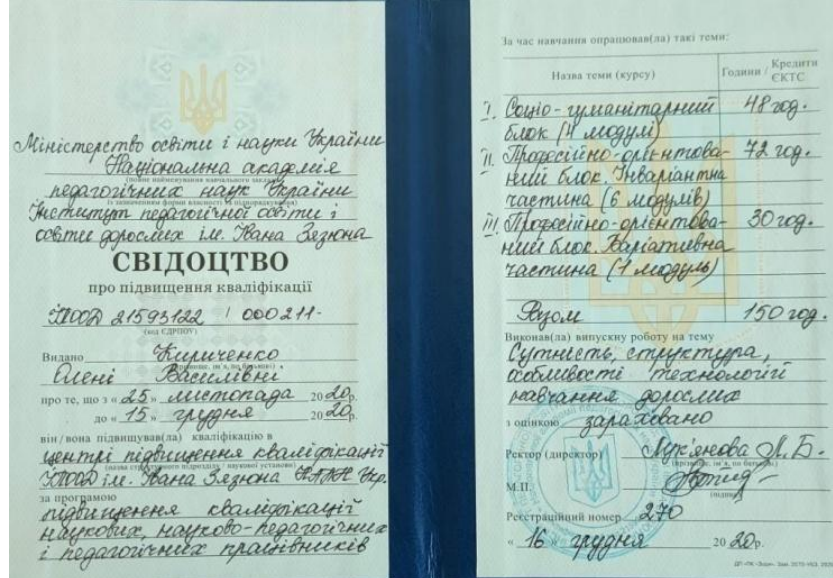 Міністерство освіти і науки України
Національна академія
(повне найменування навчального закладу
педагогічних наук України
(із зазначенням форми власності та підпорядкування)
Інститут педагогічної освіти і
освіти дорослих ім. Івана Зязюна
СВІДОЦТВО
про підвищення кваліфікації
ІПООД 21593122 / 000211-
(код ЄДРПОУ)
Видано Кириченко
(прізвище, ім'я, по батькові)
Олені Василівні
про те, що з « 25 » листопада 2020р.
до « 15 » грудня 2020р.
він/вона підвищував(ла) кваліфікацію в
центрі підвищення кваліфікації
(назва структурного підрозділу / наукової установи)
ІПООД ім. Івана Зязюна НАПН Укр.
за програмою
підвищення кваліфікації
наукових, науково-педагогічних
і педагогічних працівників
За час навчання опрацював(ла) такі теми:
Назва теми (курсу) Години / Кредити ЄКТС
I. Соціо-гуманітарний 48 год.
блок (4 модулі)
II. Професійно-орієнтова- 72 год.
ний блок. Інваріантна
частина (6 модулів)
III. Професійно-орієнтова- 30 год.
ний блок. Варіативна
частина (1 модуль)
Разом 150 год.
Виконав(ла) випускну роботу на тему
Сутність, структура,
особливості технологій
навчання дорослих
з оцінкою зараховано
Ректор (директор) Лук'янова Л.Б.
(прізвище, ім'я, по батькові)
М.П.
(підпис)
Реєстраційний номер 270
« 16 » грудня 2020р.